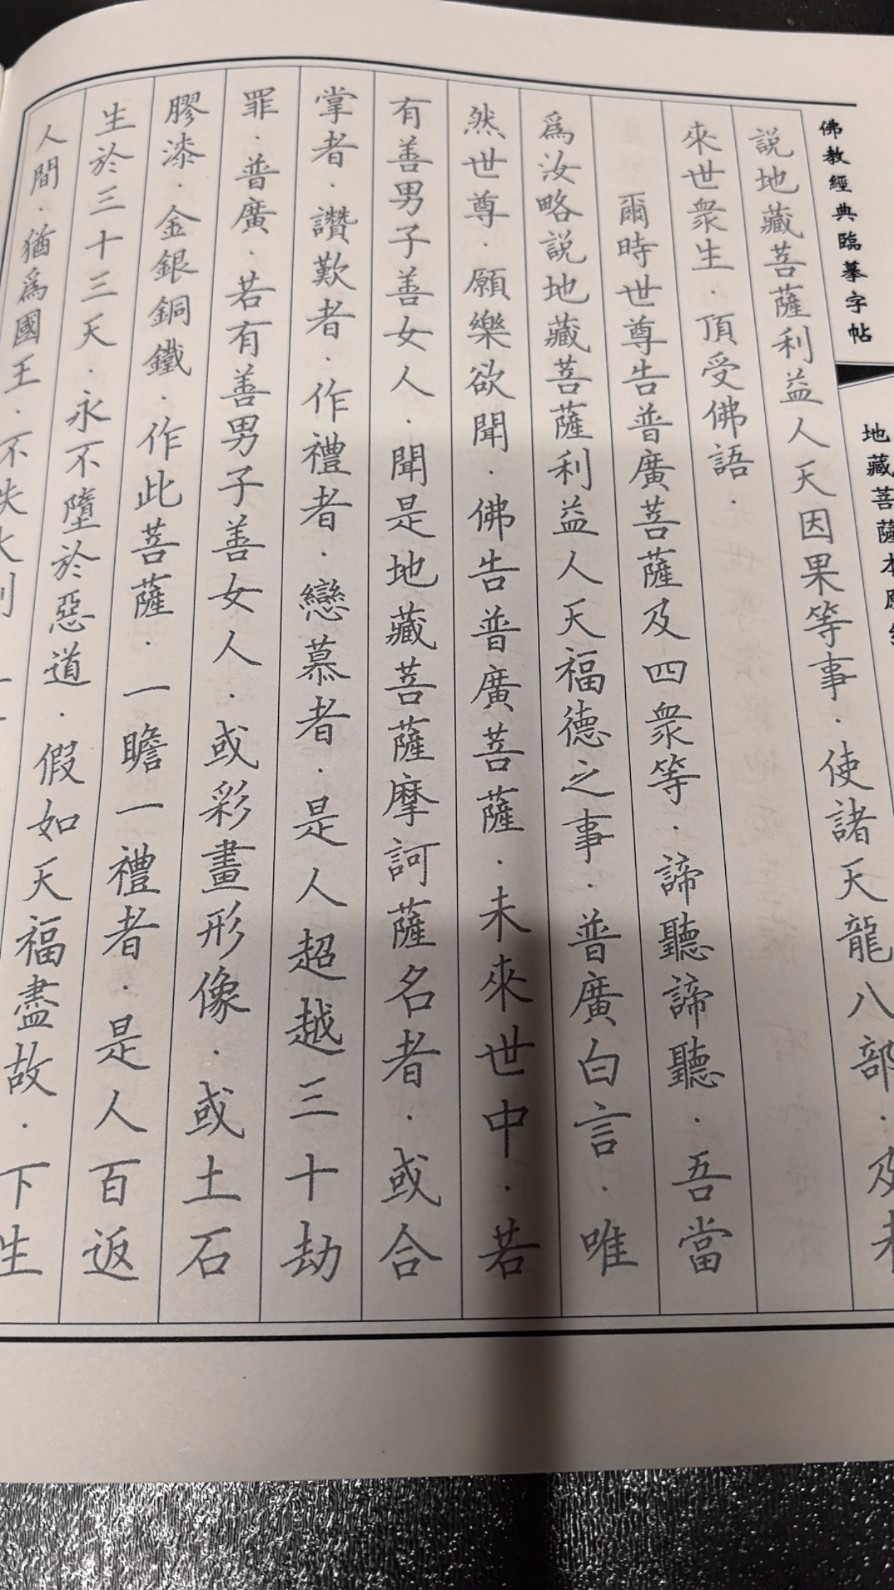 佛教經典臨摹字帖
地藏菩薩本願
說地藏菩薩利益人天因果等事．使諸天龍八部．及未
來世衆生．頂受佛語．
爾時世尊告普廣菩薩及四衆等．諦聽諦聽．吾當
爲汝略說地藏菩薩利益人天福德之事．普廣白言．唯
然世尊．願樂欲聞．佛告普廣菩薩．未來世中．若
有善男子善女人．聞是地藏菩薩摩訶薩名者．或合
掌者．讚歎者．作禮者．戀慕者．是人超越三十劫
罪．普廣．若有善男子善女人．或彩畫形像．或土石
膠漆．金銀銅鐵．作此菩薩．一瞻一禮者．是人百返
生於三十三天．永不墮於惡道．假如天福盡故．下生
人間．猶爲國王．不